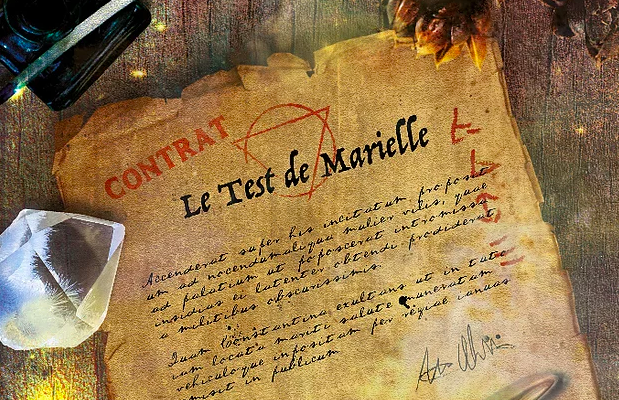 CONTRAT
Le Test de Marielle
Accenderat super his incitatum proposit
um ad nocendum aliqua mulier vilis, quae
ad palatium ut poposcerat intromissa
insidias ei latenter obtendi prodiderat
a militibus obscurissimis.
Quam Constantina exultans ut in tuto
iam locata mariti salute muneratam
vehiculoque inpositam per regiae ianuas
emisit in publicum